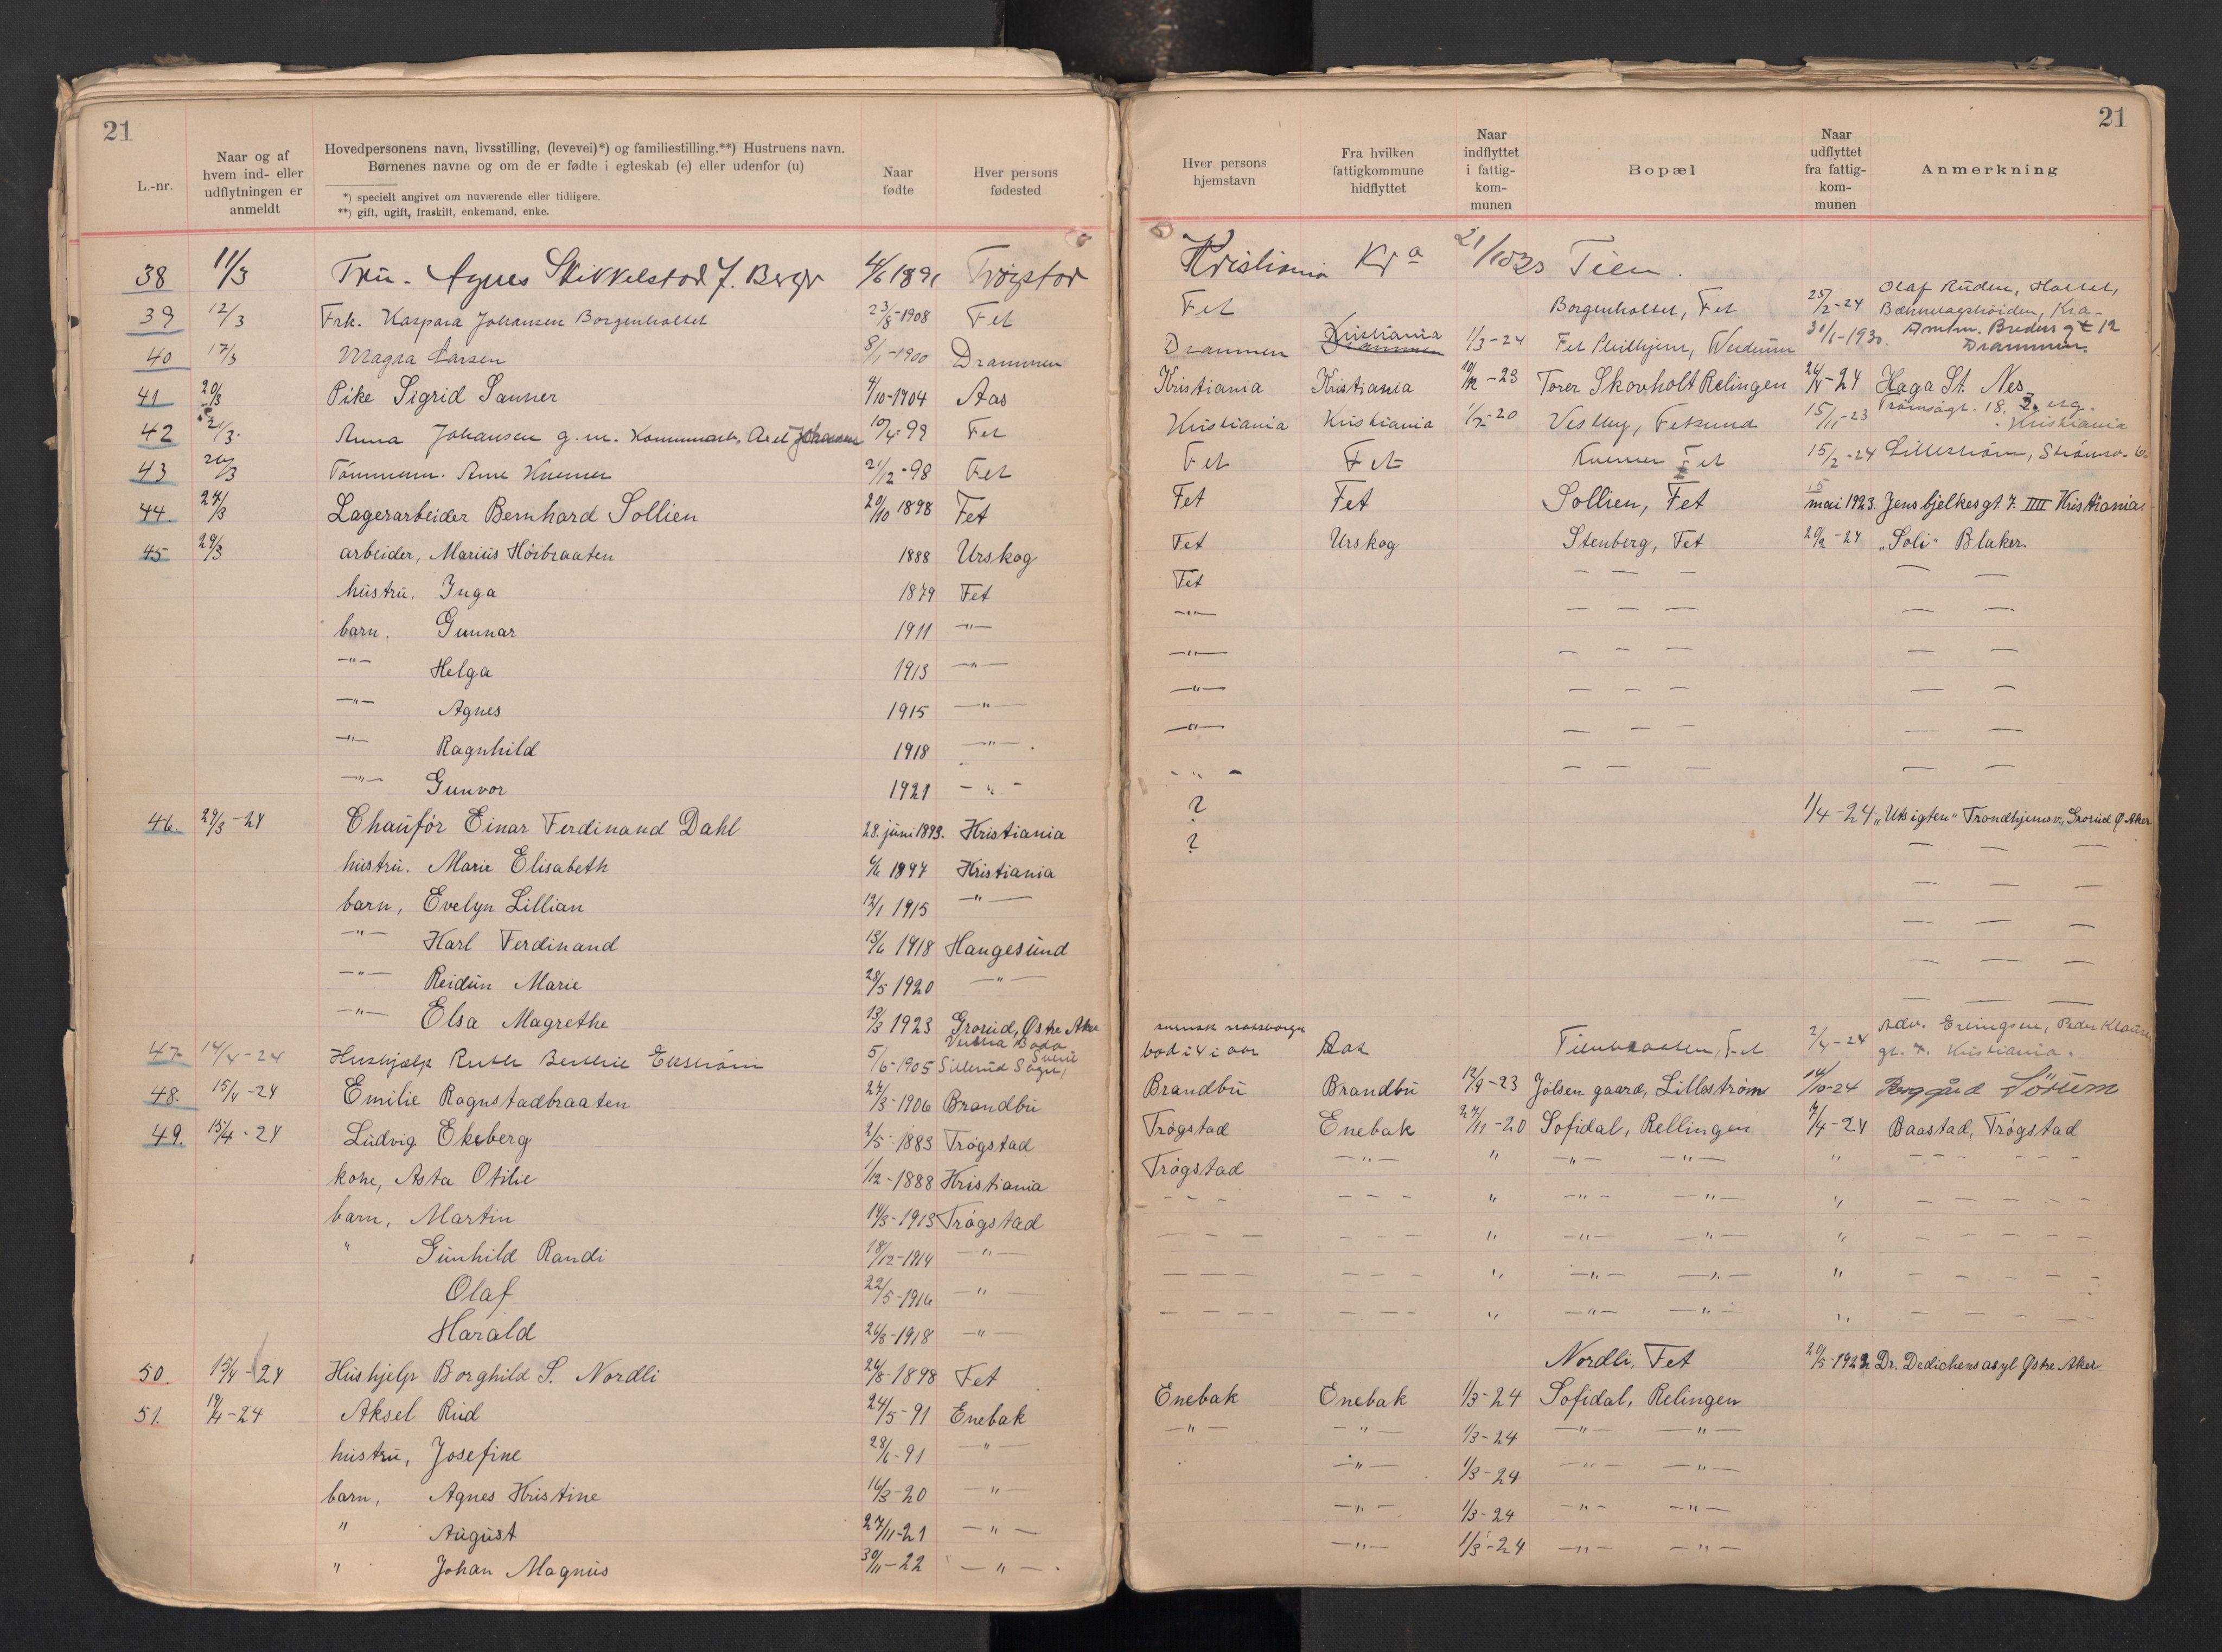 21
L.-nr.
Naar og af hvem ind- eller udflytningen er anmeldt
Hovedpersonens navn, livsstilling, (levevei)*) og familiestilling.**) Hustruens navn.
Børnenes navne og om de er fødte i egteskab (e) eller udenfor (u)
*) specielt angivet om nuværende eller tidligere.
**) gift, ugift, fraskilt, enkemand, enke.
Naar fødte
Hver persons fødested
38 11/3 Fru. Agnes Skikkelstad f. Berger 1891 Trøgstad
39 12/3 Frk. Kaspara Johansen Borgenholtet 23/8-1908 Fet
40 17/3 Magna Larsen 8/1-1900 Drammen
41 20/3 Pike Sigrid Sanner 4/10-1904 Aas
42 21/3. Anna Johansen g.m. Axel Johansen 10/4-99 Fet
43 Tømmerm. Arne Kvernen 21/12-98 Fet
44. 24/3 Lagerarbeider Bernhard Sollien 20/10 1898 Fet
45 29/3 arbeider, Marius Høibraaten 1888 Urskog
hustru, Inga 1879 Fet
barn, Gunnar 1911 -"-
-"- Helga 1913 -"-
-"- Agnes 1915 -"-
-"- Ragnhild 1918 -"-
-"- Gunvor 1921 -"-
46. 29/3-24 Chaufør Einar Ferdinand Dahl 28. juni 1893. Kristiania
hustru. Marie Elisabeth 1897 Kristiania
barn, Evelyn Lillian 12/1 1915 -"-
-"- Karl Ferdinand 13/6 1918 Haugesund
-"- Reidun Marie 28/5 1920 -"-
-"- Elsa Magrethe 13/3 1923 Grorud, Østre Aker
47. 14/4-24 Hushjælp Ruth Ekstrøm 5/6-1905 Sillerud Sogn,
48. 15/4-24 Emilie Rognstadbraaten 27/3-1906 Brandbu
49. 15/4-24 Ludvig Ekeberg 2/5-1883 Trøgstad
kone, Asta Otilie 1/12-1888 Kristiania
barn, Martin 14/3-1913 Trøgstad
" Gunhild Randi 18/12-1914 -"-
Olaf 22/5-1916 -"-
Harald 26/3-1918 -"-
50. 15/4-24 Hushjelp Borghild S. Nordli 26/8-1898 Fet
51. 19/4-24 Aksel Rud 24/5-91 Enebak
hustru, Josefine 28/6-91 -"-
barn, Agnes Kristine 16/3-20 -"-
" August 27/11-21 -"-
" Johan Magnus 30/11-22 -"-
21
Hver persons hjemstavn
Fra hvilken fattigkommune hidflyttet
Naar indflyttet i fattig-kom-munen
Bopæl
Naar udflyttet fra fattig-kom-munen
Anmerkning
Kristiania Kra 21/10 23 Tien.
Fet Borgenholtet, Fet 25/2-24 Olaf Ruden, Holtet,
Bækkelagshøiden, Kra-
Drammen Kristiania 1/3-24 Fet Pleiehjem, 31/1-1930. Amtm. Bredersgt 12 Drammen.
Kristiania Kristiania 10/12-23 Torer Skovholt Relingen 26/4-24 Haga St. Nes
Kristiania Kristiania 1/7-20 Vesthy, Fetsund 15/11-23 Tromsøgt. 18. 2. etg. Kristiania
Fet Fet Kvernen Fet 15/2-24 Lillestrøm,
Fet Fet Sollien, Fet 15 mai 1923. Jens bjelkesgt. 7. IIII Kristiania
Fet Urskog Stenberg, Fet 20/2-24 "Soli" Blaker.
Fet — — — — —
-"- — — — — —
-"- — — — — —
-"- — — — — —
-"- — — — — —
-"- — — — — —
? 1/4-24 "Utsigten" Trondhjemsv., Grorud Ø Aker
? — — —
— — —
— — —
— — —
— — —
svensk statsborger
bod i 4 i aar Aas Tienbraaten, Fet 2/4-24 Adv. Erlingsen, Peder Klausøns
gt. 7. Kristiania.
Brandbu Brandbu 12/9-23 Jølsen gaard, Lillestrøm 14/10-24 Sørum
Trøgstad Enebak 27/11-20 Sofidal, Rellingen 7/4-24 Baastad, Trøgstad
Trøgstad -"- " -"- -"- " - - - - - -
- - - - - - " -"- -"- " - - - - -
- - - - - - " -"- -"- " - - - - -
- - - - - - " -"- -"- " - - - - -
- - - - - - " -"- -"- " - - - - -
Nordli, Fet 20/5-1922 Dr. Dedichens asyl Østre Aker
Enebak Enebak 1/3-24 Sofidal, Relingen
-"- -"- 1/3-24 -"- -"-
-"- 1/3-24 -"- -"-
-"- 1/3-24 -"- -"-
-"- 1/3-24 -"- -"-